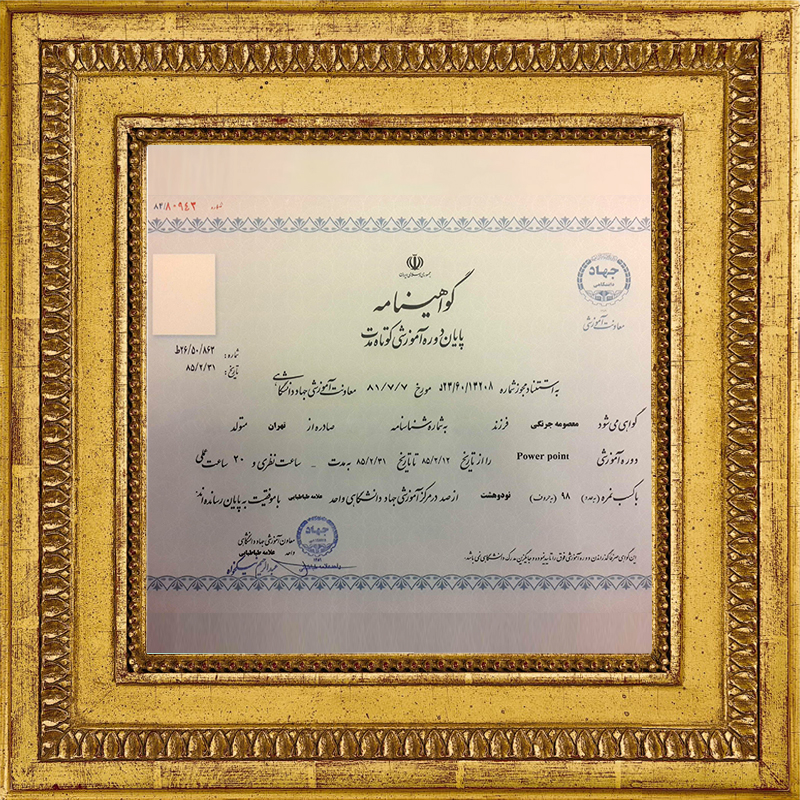 ۸۴/۸۰۹۴۳
جمهوری اسلامی ایران
جهاد
دانشگاهی
معاونت آموزشی
گواهینامه
پایان دوره آموزشی کوتاه مدت
شماره : ۲۶/۵۰/۸۶۳ط
تاریخ : ۸۵/۲/۳۱
به استناد مجوز شماره ۲۴/۶۰/۱۴۲۰۸د مورخ ۸۱/۷/۷ معاونت آموزشی جهاد دانشگاهی
گواهی می شود معصومه جرنگی فرزند به شماره شناسنامه صادره از تهران متولد
دوره آموزشی Power point را از تاریخ ۸۵/۲/۱۲ تا تاریخ ۸۵/۲/۳۱ به مدت _ ساعت نظری و ۲۰ ساعت عملی
با کسب نمره (به عدد) ۹۸ (به حروف) نودوهشت از صد در مرکز آموزشی جهاد دانشگاهی واحد علامه طباطبایی با موفقیت به پایان رسانده اند.
معاون آموزشی جهاد دانشگاهی
واحد علامه طباطبایی
جهاد
دانشگاهی
این گواهی صرفا گذراندن دوره آموزشی فوق را تایید نموده و جایگزین مدرک دانشگاهی نمی باشد.